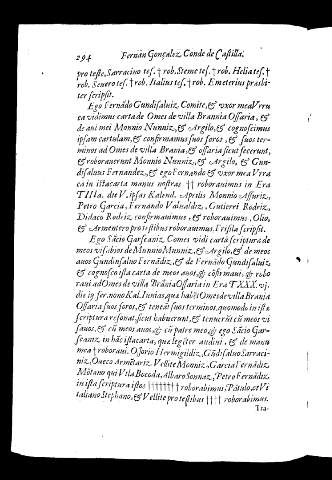 294 Fernán Gonçalez, Conde de Castilla.
pro teste, Sarracino tes. † rob. Steme tes. † rob. Helia tes. †
rob. Seuero tes. † rob. Italius tes. † rob. Emeterius præsbi-
ter scripsit.
Ego Fernãdo Gundisaluiz, Comite, & vxor mea Vrra
ca vidimus carta de Omes de villa Brannia Ossaria, &
de aui mei Monnio Nunniz, & Argilo, & cognoscimus
ipsam cartulam, & confirmamus suos foros, & suos ter-
minos ad Omes de villa Brania, & ossaria sicut fecerunt,
& roborauerunt Monnio Nunniz, & Argilo, & Gun-
disaluus Fernandez, & ego Fernando & vxor mea Vrra
ca in ista carta manus nostras †† roborauimus in Era
Petro Garcia, Fernando Vulnaldiz, Gutierri Rodriz,
Didaco Rodriz, confirmauimus, & roborauimus, Olio,
& Armentero pro testibus roborauimus, Fristila scripsit.
Ego Sãcio Garseaniz, Comes vidi carta scriptura de
meos visabios de Munnio Munniz, & Argilo, & de meos
auos Gundisaluo Fernãdiz, & de Fernãdo Gundisaluiz,
& cognosco ista carta de meos auos, & cõfirmaui, & robo
raui ad Omes de villa Brãnia Ossaria in Era TXXX. vj.
die in fer. nono Kal. Iunias, que habẽt Omes de villa Brania
Ossaria suos foros, & teneãt suos terminos, quomodo in iste
scriptura resonat, sicut habuerunt, & tenuerũt cũ meos vi
sauos, & cũ meos auos, & cũ patre meo, & ego Sãcio Gar-
seaniz, in hãc ista carta, que legiter audiui, & de manu
mea † roboraui. Ossorio Hermigiidiz, Gũdisaluo Sarraci-
niz, Oueco Armẽtariz, Vellite Monniz, Garcia Fernãdiz
Mõtano qui Vila Bocoda, Albaro Sonnaz, Petro Fernãdiz
in ista scriptura istos ††††††† roborabimus, Tãtulo, et Vi
taliano Stephano, & Vellite pro testibus ††† roborabimus.
Tra-